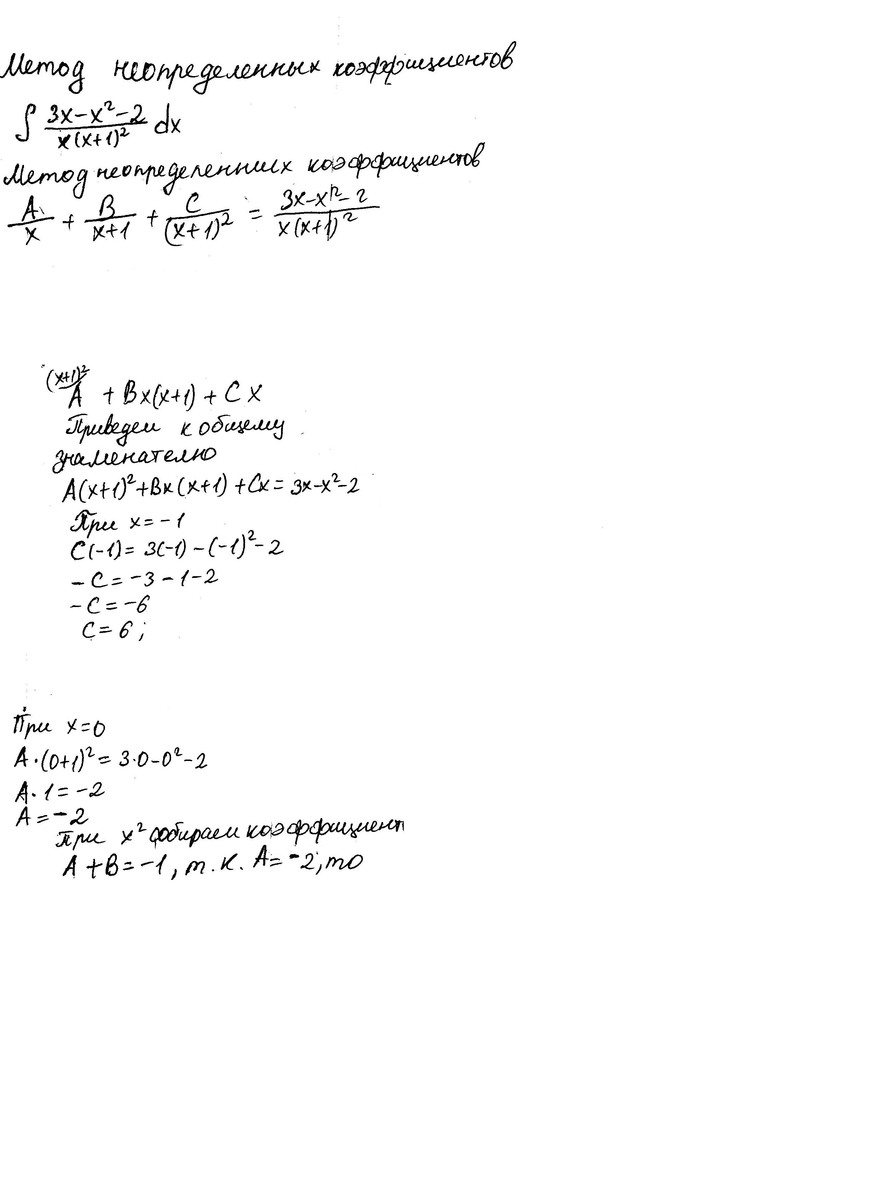 Метод неопределенных коэффициентов
∫ (3x-x²-2)/(x(x+1)²) dx
Метод неопределенных коэффициентов
A/x + B/(x+1) + C/(x+1)² = (3x-x²-2)/(x(x+1)²)
(x+1)²
A + Bx(x+1) + Cx
Приведем к общему
знаменателю
A(x+1)²+Bx(x+1)+Cx=3x-x²-2
При x=-1
C(-1)=3(-1)-(-1)²-2
-C=-3-1-2
-C=-6
C=6;
При x=0
A·(0+1)²=3·0-0²-2
A·1=-2
A=-2
При x² собираем коэффициент
A+B=-1, т.к. A=-2, то